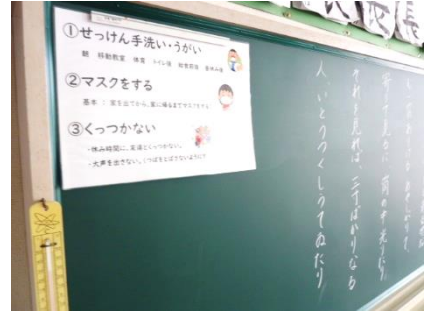 ①せっけん手洗い・うがい
朝 移動教室 体育 トイレ後 給食前後 昼休み後
②マスクをする
基本：家を出てから、家に帰るまでマスクをする
③くっつかない
・休み時間に、友達とくっつかない。
・大声を出さない。くっつばをとばさないように
長
寄りて見るに、筒の中光りたり。
それを見れば、三寸ばかりなる
人、いとうつくしうてゐたり